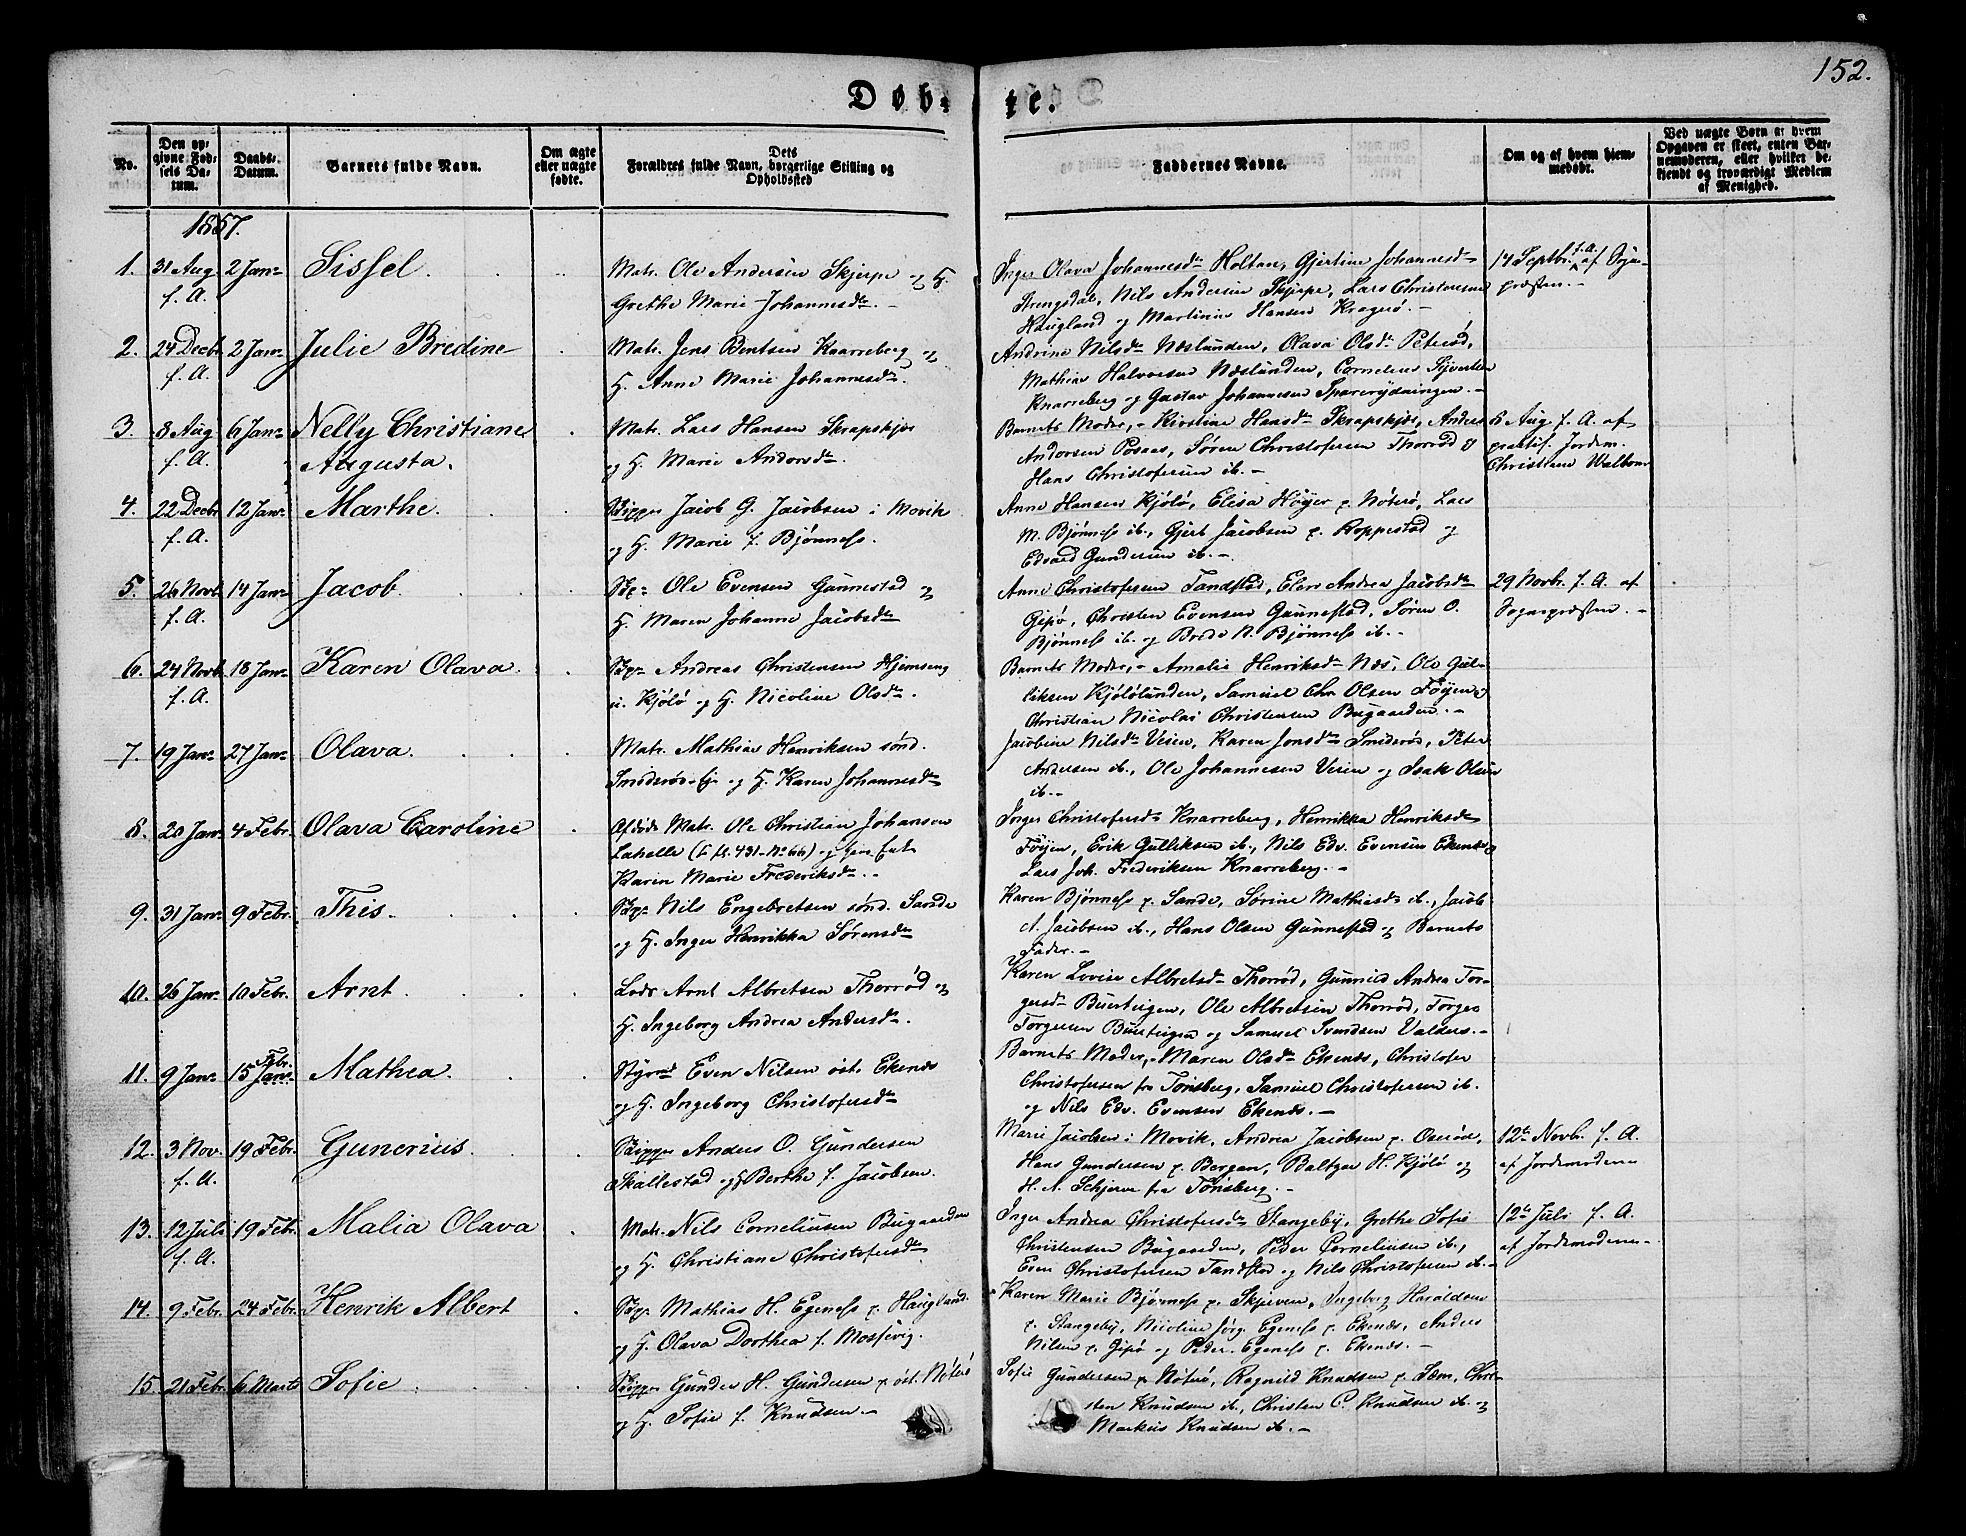 152.
Døb-te.
No.
Den op-
givne Fød-
sels Da-
tum.
Daabs-
Datum.
Barnets fulde Navn.
Om ægte
eller uægte
fødte.
Dets
Forældres fulde Navn, borgerlige Stilling og
Opholdssted
Faddernes Navne.
Om og af hvem hjem-
medøbt.
Ved uægte Børn af hvem
Opgaven er skeet, enten Bar-
nemoderen, eller hvilket be-
kjendt og troværdigt Medlem
af Menighed.
1857.
1. 31 Aug 2 Janr Sissel. Matr. Ole Andersen Skjerpe og H.
f. A. Grethe Marie Johannesdr.
Inger Olava Johannesdr Holtan, Gjertine Johannesdr
Strengsdal, Nils Andersen Skjerpe, Lars Christensen
Haugland og Martinius Hansen Kragerø.
14 Septbr. f. A. af Sogne-
præsten.
2. 24 Decbr 2 Janr Julie Bredine Matr. Jens Bentsen Knarreberg og
f. A. H. Anne Marie Johannesdr.
Andrine Nilsdr Næslunden, Olava Olsdr Peterød,
Mathias Halvorsen Næslunden, Cornelius Syvertsen
Knarreberg og Gustav Johannesen Sparerydningen.
3. 8 Aug 6 Janr Nelly Christiane Matr. Lars Hansen Skrapskjær
f. A. Augusta. og H. Marie Andorsdr.
Barnets Moder, Kirstine Hansdr Skrapskjær, Anders
Andorsen Posaas, Søren Christofersen Thorrød &
Hans Christofersen ib.
8 Aug f. A. af
Jordem.
Christine
4. 22 Decbr 12 Janr Marthe. Skipper Jacob G. Jacobsen i Movik
f. A. og H. Marie f. Bjønness.
Anne Hansen Kjøløe, Elisa Høyer p. Nøterø, Lars
M. Bjønness ib., Gjert Jacobsen p. Roppestad og
Edvard Gundersen ib.
5. 26 Novb 14 Janr Jacob Skp. Ole Evensen Gunnestad og
f. A. H. Maren Johanne Jacobsdr.
Anne Christofersen Tandstad, Elen Andrea Jacobsdr
Gipø, Christen Evensen Gunnestad, Søren O.
Bjønness ib. og Brede N. Bjønness ib.
29 Novbr. f. A. af
Sognepræsten.
6. 24 Novb 18 Janr Karen Olava. Skp. Andreas Christensen Hjemseng
f. A. u. Kjøløe og H. Nicoline Olsdr.
Barnets Moder, Amalie Henriksdr Næs, Ole Gul-
liksen Kjøløelunden, Samuel Chr Olsen Føyen &
Christian Nicolai Christensen Bugaarden.
7. 19 Janr 27 Janr Olava. Matr. Mathias Henriksen sønd.
Smiderøe og H. Karen Johannesdr
Jacobine Nilsdr Veien, Karen Jonsdr Smiderød, Peter
Andersen ib., Ole Johannesen Veien og Isak Olsen
ib.
8. 20 Janr 4 Febr. Olava Caroline Afdøde Matr. Ole Christian Johansen
Lahelle (f. fl. 431. No 66) og hans Enke
Karen Marie Frederiksdr.
Inger Christofersdr Knarreberg, Henrikka Henriksdr
Føyen, Erik Gulliksen ib., Nils Edv. Evensen Ekenes &
Lars Joh. Frederiksen Knarreberg.
9. 31 Janr 9 Febr. This. Skp. Nils Engebretsen sønd. Sande
og H. Inger Henrikka Sørensdr
Karen Bjønness p. Sande, Sørine Mathisdr ib., Jacob
A. Jacobsen ib., Hans Olsen Gunnestad og Barnets
Fader.
10. 26 Janr 10 Febr. Arnt. Lods Arnt Albretsen Thorrød og
H. Ingeborg Andrea Andersdr.
Karen Lovise Albretsdr Thorrød, Gunnild Andrea Tor-
gersdr Buerstigen, Ole Albretsen Thorrød, Torger
Torgersen Buerstigen og Samuel Svendsen Valders.
11. 9 Janr 15 Febr. Janr. Mathea. Styrmd Even Nilsen øst. Ekenes
og H. Ingeborg Christofersdr
Barnets Moder, Maren Olsdr Ekenes, Christofer
Christofersen fra Tønsberg, Samuel Christofersen ib.
og Nils Edv. Evensen Ekenes.
12. 3 Nov. 19 Febr. Gunerius. Skipper Anders O. Gundersen
f. A. Skallestad og H. Berthe f. Jacobsen.
Marie Jacobsen i Movik, Andrea Jacobsen p. Oserød,
Hans Gundersen p. Bergan, Baltzer H. Kjøløe og
H. A. Schjerve fra Tønsberg.
12te Novbr. f. A.
af Jordemoderen
13. 12 Juli 19 Febr. Malia Olava Matr. Nils Corneliusen Bugaarden
f. A. og H. Christiane Christofersdr
Inger Andrea Christofersdr Stangeby, Grethe Sofie
Christensen Bugaarden, Peder Corneliusen ib.,
Even Christofersen Tandstad og Nils Christofersen ib.
12te Juli f. A.
af Jordemoderen
14. 9 Febr. 24 Febr. Henrik Albert Skp. Mathias H. Egeness p. Haugland.
og H. Olava Dorthea f. Mossevig.
Karen Marie Bjønness p. Skjerven, Ingeborg Haraldsen
p. Stangeby, Nicoline Jørg. Egeness p. Ekenes, Anders
Nilsen p. Gipø og Peder Egeness p. Ekenes.
15. 21 Febr. 6 Marts Sofie. Skipper Gunder H. Gundersen p. øst. Nøterø
og H. Sofie f. Knudsen.
Sofie Gundersen p. Nøterø, Ragnild Knudsen p. Sem, Chri-
sten Knudsen ib., Christen C. Knudsen ib. og
Markus Knudsen ib.